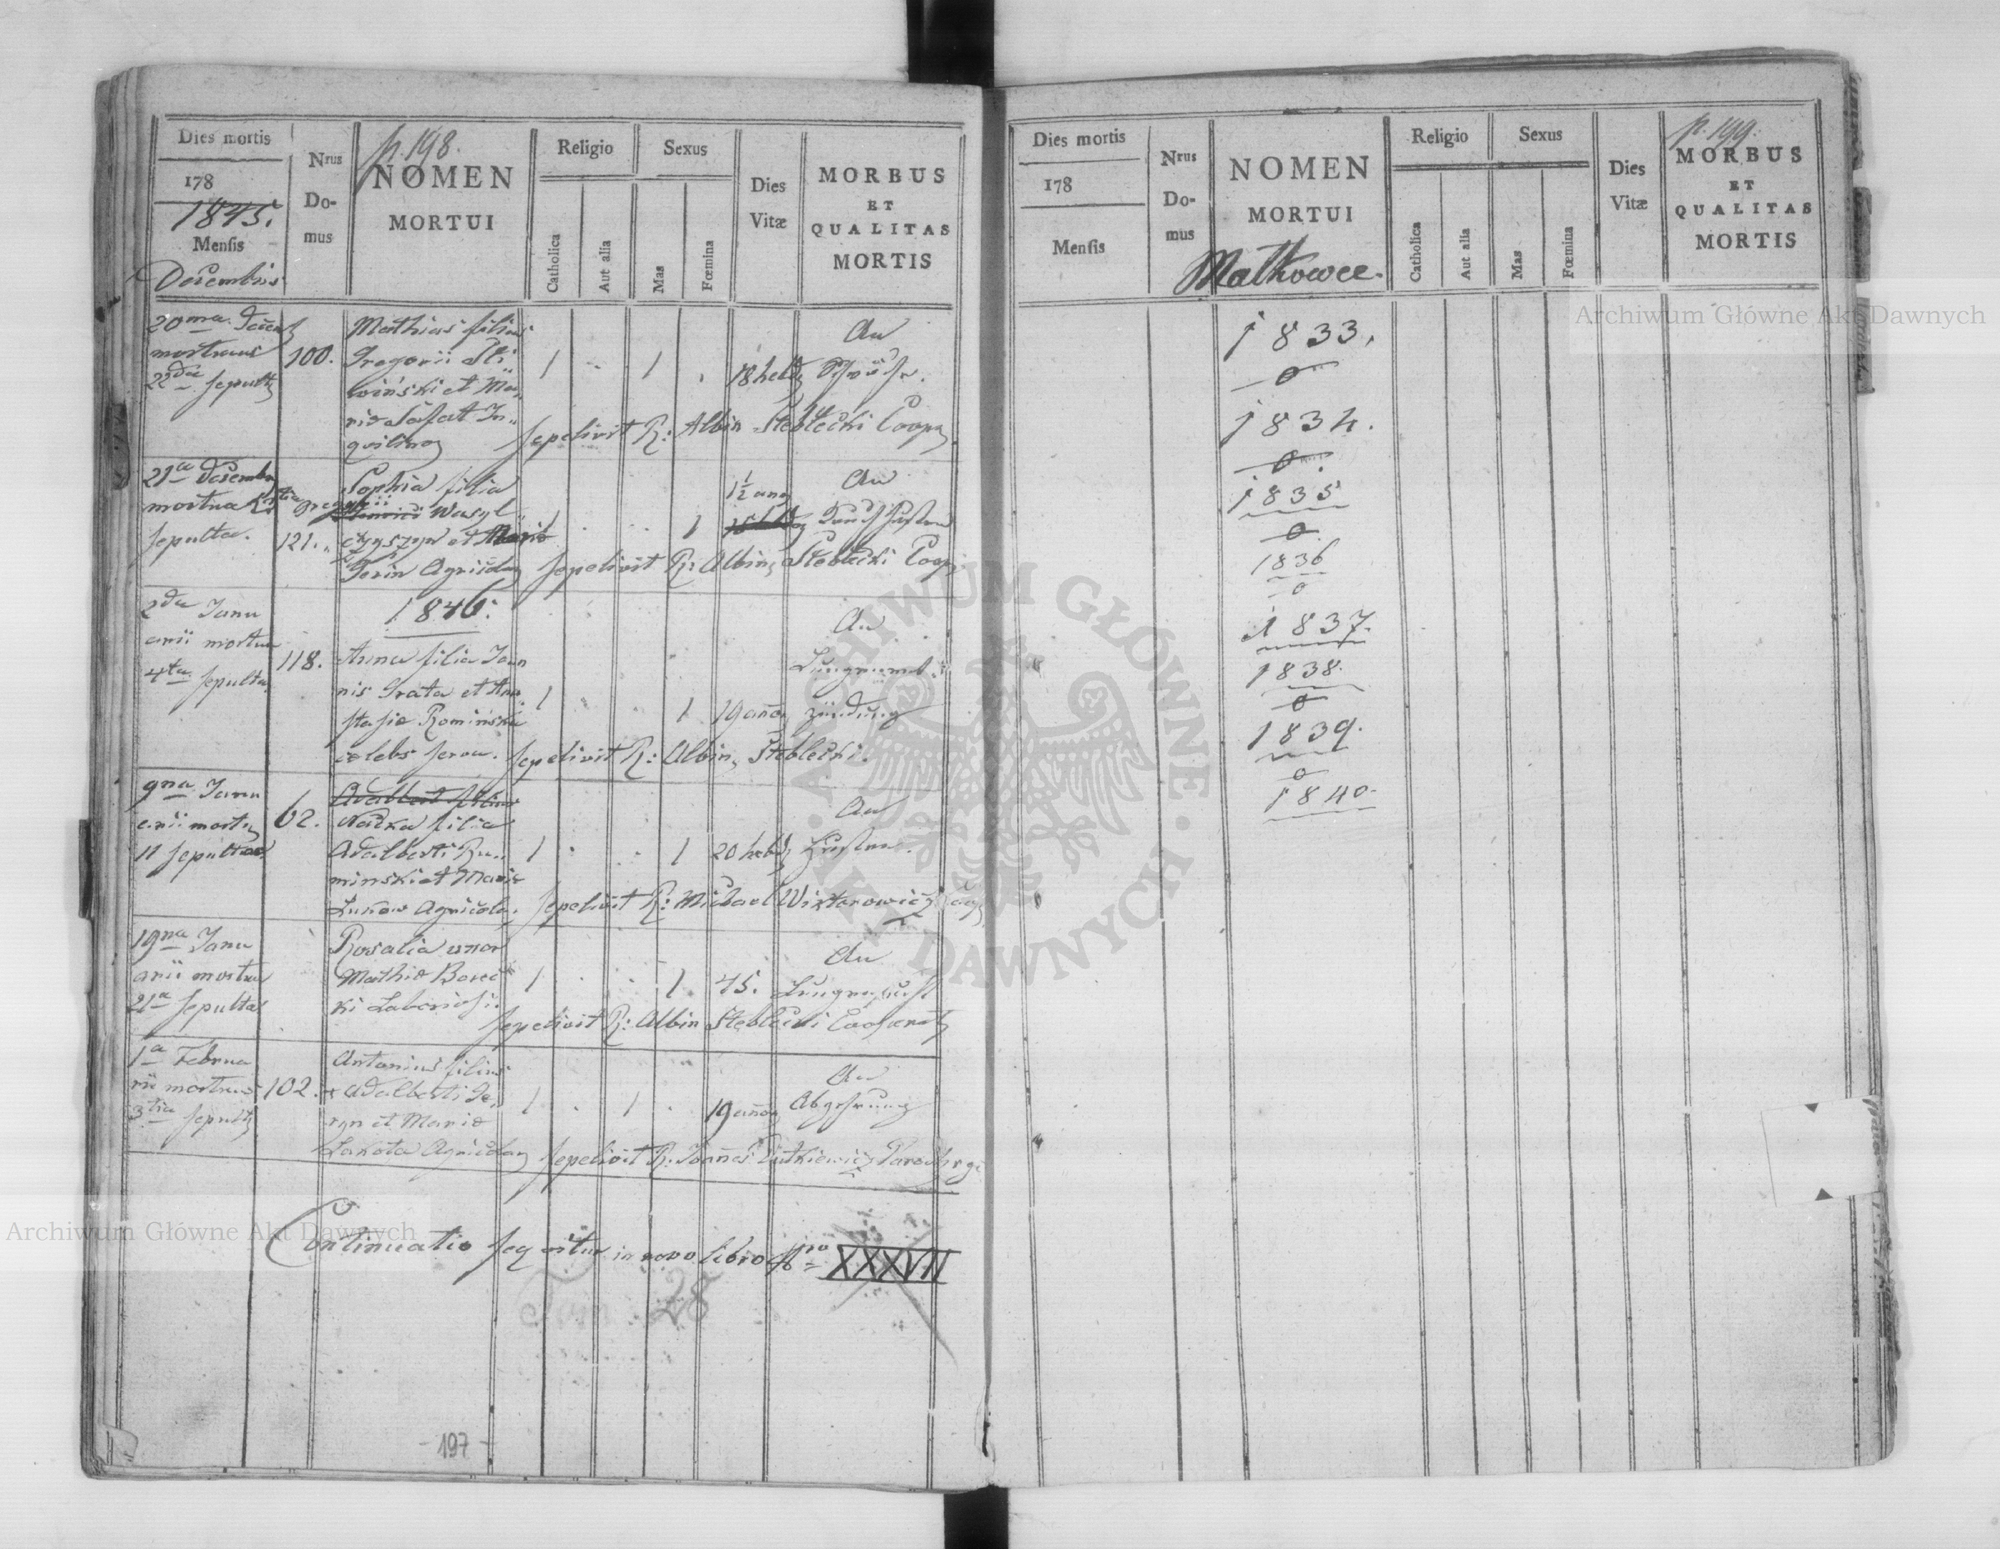 p. 198.
Dies mortis
178
1845.
Mensis
Decembris
Nrus
Do-
mus
NOMEN
MORTUI
Religio
Catholica
Aut alia
Sexus
Mas
Fœmina
Dies
Vitæ
MORBUS
ET
QUALITAS
MORTIS
20ma
mortuus
22da sepult
100.
Mathias filius
Gregorii
et Ma
In
quilinor
1
1
18 hebd
An
sepelivit R: Albin Steblecki Coop
21a Decemb
mortua
sepulta.
121.
Sophia filia
Wasyl
czyszyn et Maria
Agricola
1
1
1½ ann
An
sepelivit R: Albin Steblecki Coop
1846.
2da Janu
arii mortua
4ta sepulta
118.
Anna filia Joan
nis Grata et Ana
stasia Rominska
celebs
1
1
19 annor
An
Lungenent
zündung
sepelivit R: Albin Steblecki.
9na Janu
arii mortu
11 sepulta
62.
Adalbert filius
filia
Adalberti Ru
minski et Maria
Lukow Agricola.
1
1
20 hebd
An
Husten.
sepelivit R: Michael Wiktorowicz
19na Janu
arii mortua
21a sepulta
Rosalia uxor
Mathia Borec
ki
1
1
45.
An
Lungensucht
sepelivit R: Albin Steblecki Cooperat
1a Februa
rii mortuus
3tia sepult
102.
Antonius filius
Adalberti
et Maria
Lakota Agricola
1
1
19 annor
An
Abzehrung
sepelivit R: Joannes Putkiewicz
Continuatio sequitur in novo libro Nro XXXVII
Tom 28
- 197 -
p. 199.
Dies mortis
178
Mensis
Nrus
Do-
mus
NOMEN
MORTUI
Malkowce.
Religio
Catholica
Aut alia
Sexus
Mas
Fœmina
Dies
Vitæ
MORBUS
ET
QUALITAS
MORTIS
1833.
0
1834.
0
1835
0
1836
0
1837.
1838.
0
1839.
0
1840.
Archiwum Główne Akt Dawnych
Archiwum Główne Akt Dawnych
ARCHIWUM GŁÓWNE · AKT DAWNYCH ·